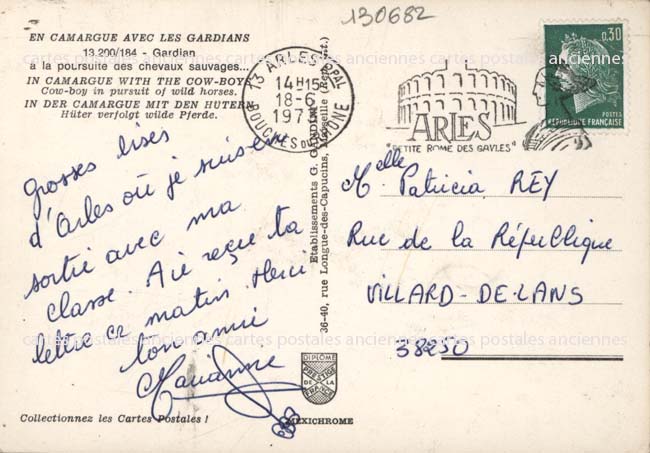 130682
EN CAMARGUE AVEC LES GARDIANS
13.200/184 - Gardian
à la poursuite des chevaux sauvages...
IN CAMARGUE WITH THE COW-BOYS
Cow-boy in pursuit of wild horses.
IN DER CAMARGUE MIT DEN HUTERN
Hüter verfolgt wilde Pferde.
13 ARLES PPAL
14H15
18-6
197
BOUCHES DU RHONE
ARLES
"PETITE ROME DES GAULES"
0,30
POSTES
REPUBLIQUE FRANÇAISE
Grosses bises
d'Arles où je suis en
sortie avec ma
classe. Ai reçu ta
lettre ce matin. Merci
ton amie
Marianne
Etablissements G. GANDINI
36-40, rue Longue-des-Capucins, Marseille
Melle Patricia REY
Rue de la République
VILLARD-DE-LANS
38250
cartes postales anciennes cartes postales anciennes cartes postales anciennes
DIPLOME
PRESTIGE
DE LA
FRANCE
MEXICHROME
Collectionnez les Cartes Postales !